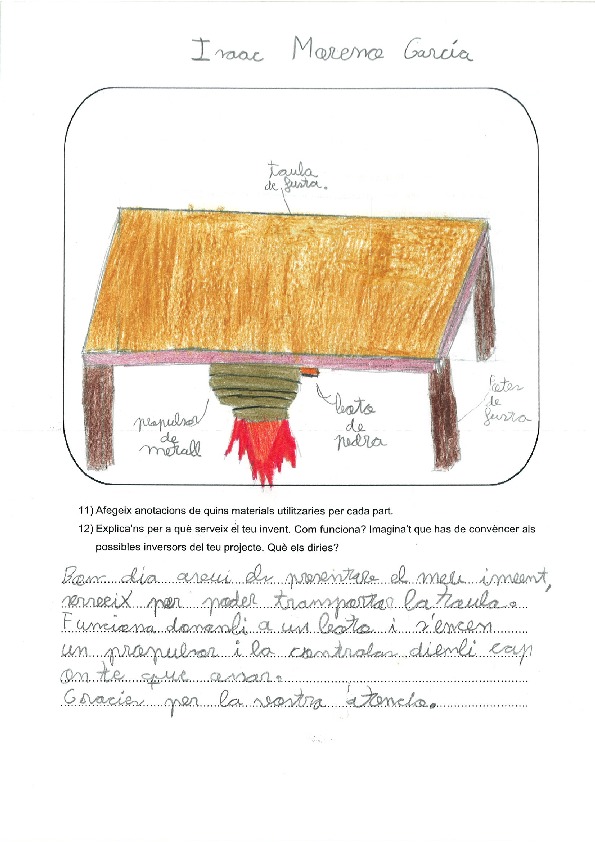 Isaac Moreno García
taula
de fusta.
propulsor
de
metall
boto
de
pedra
potes
de
fusta
11) Afegeix anotacions de quins materials utilitzaries per cada part.
12) Explica'ns per a què serveix el teu invent. Com funciona? Imagina't que has de convèncer als
possibles inversors del teu projecte. Què els diries?
Bon dia avui us presentare el meu imvent,
serveix per poder transportar la taula.
Funciona donanli a un boto i s'encen
un propulsor i la controlas dienli cap
on te que anar.
Gracies per la vostra atencio.